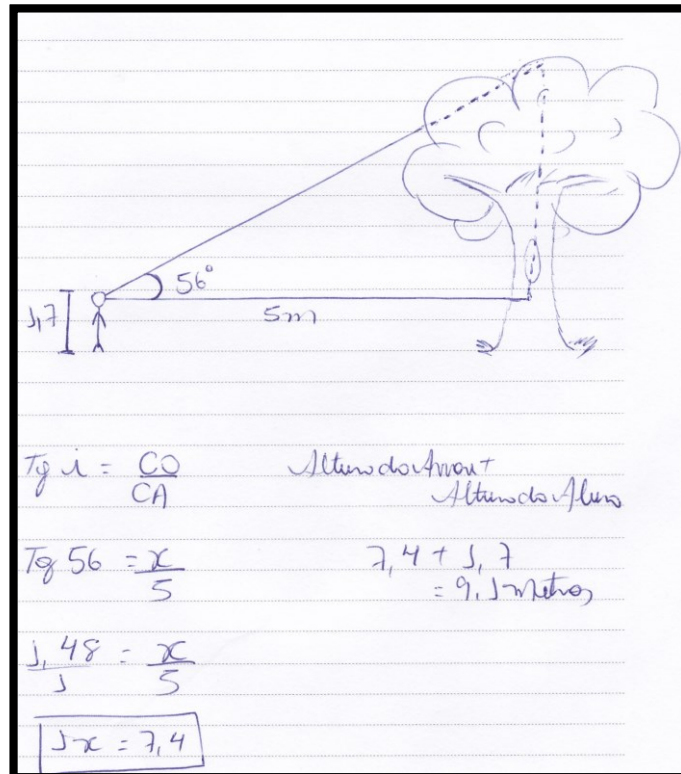 56°
1,7
5m
Tg i = CO/CA
Altura da Árvore +
Altura do Aluno
Tg 56 = x/5
7,4 + 1,7
= 9,1 metros
1,48/1 = x/5
1x = 7,4